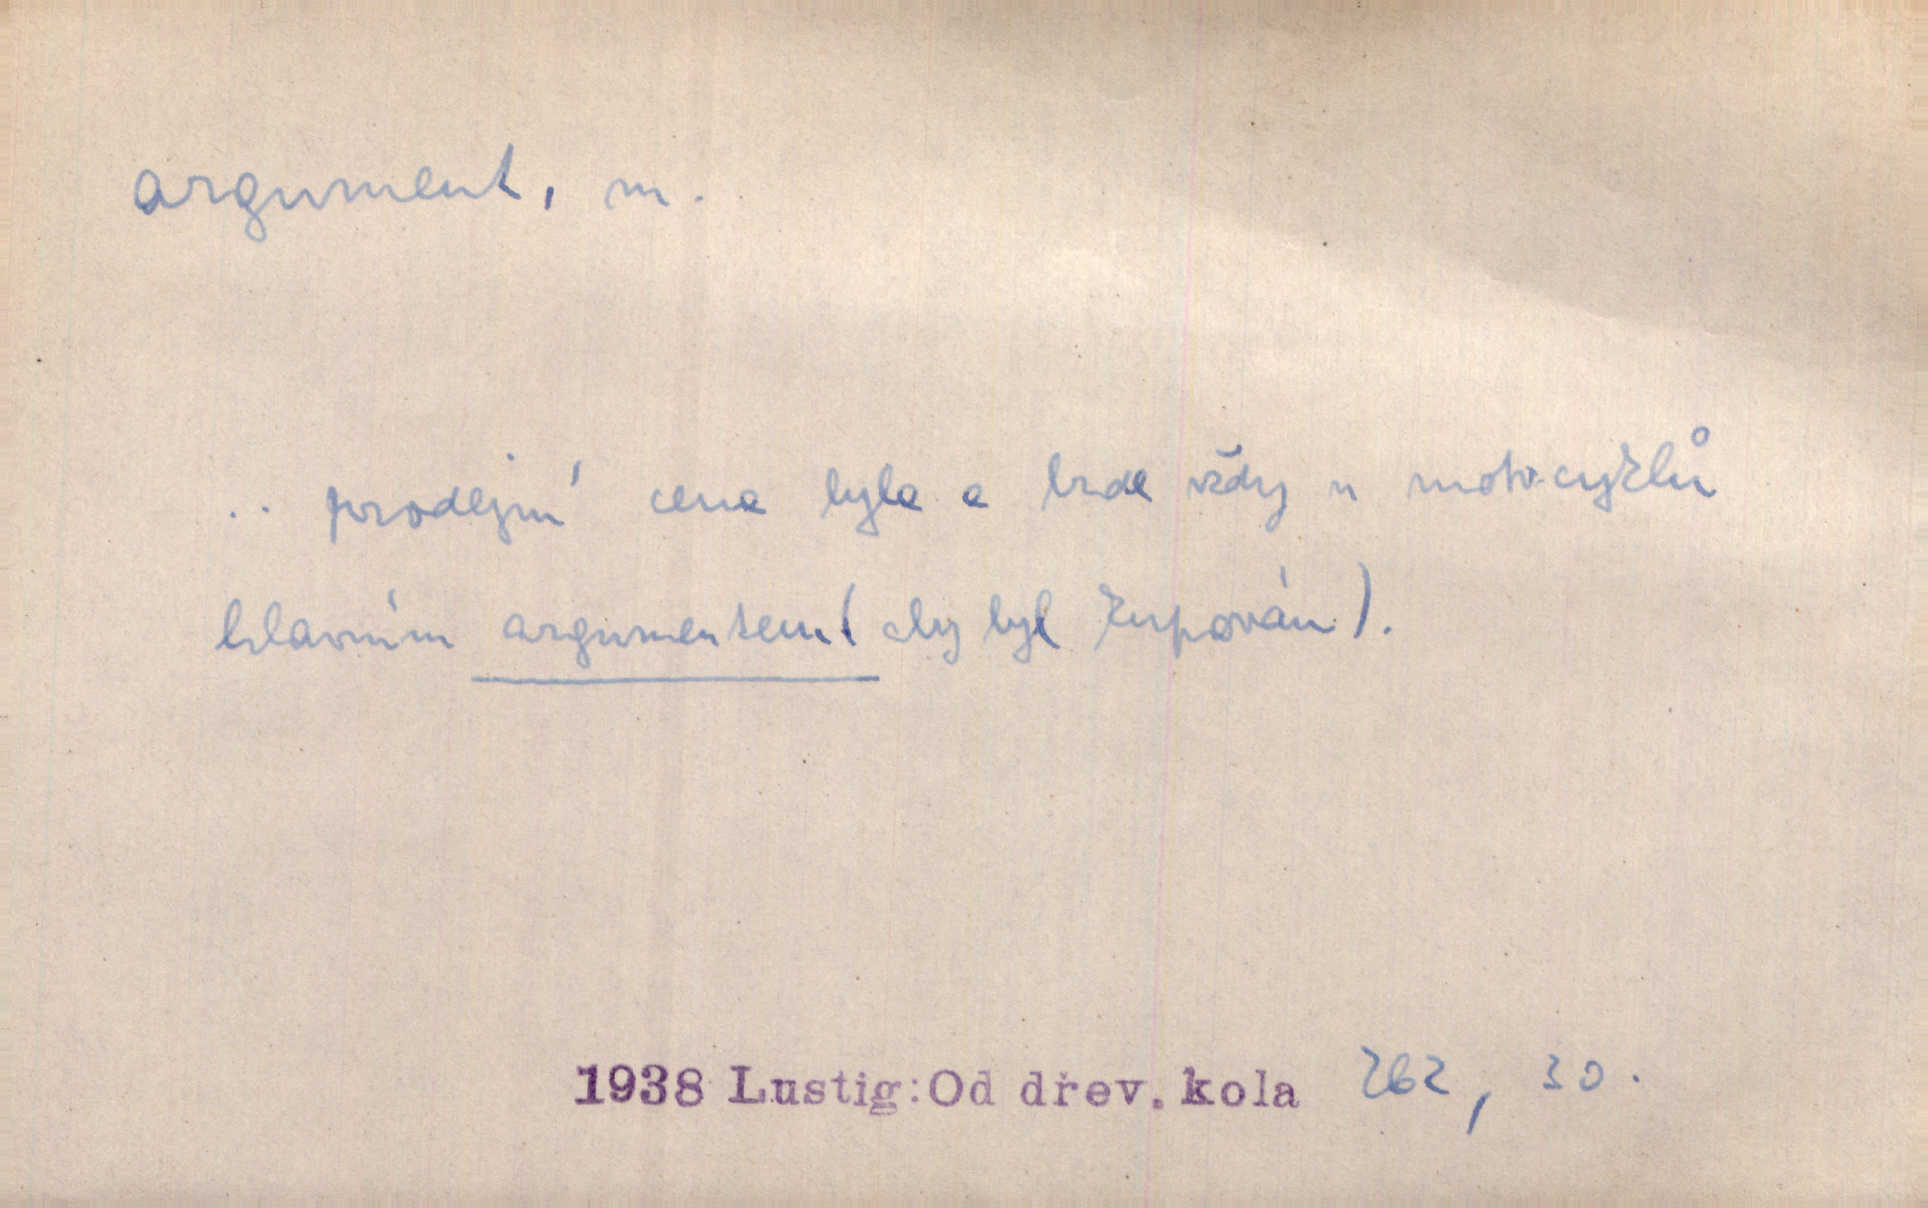 argument, m.
.. prodejní cena byla a bude vždy u motocyklů
hlavním argumentem (aby byl kupován).
1938 Lustig: Od dřev. kola 262, 30.